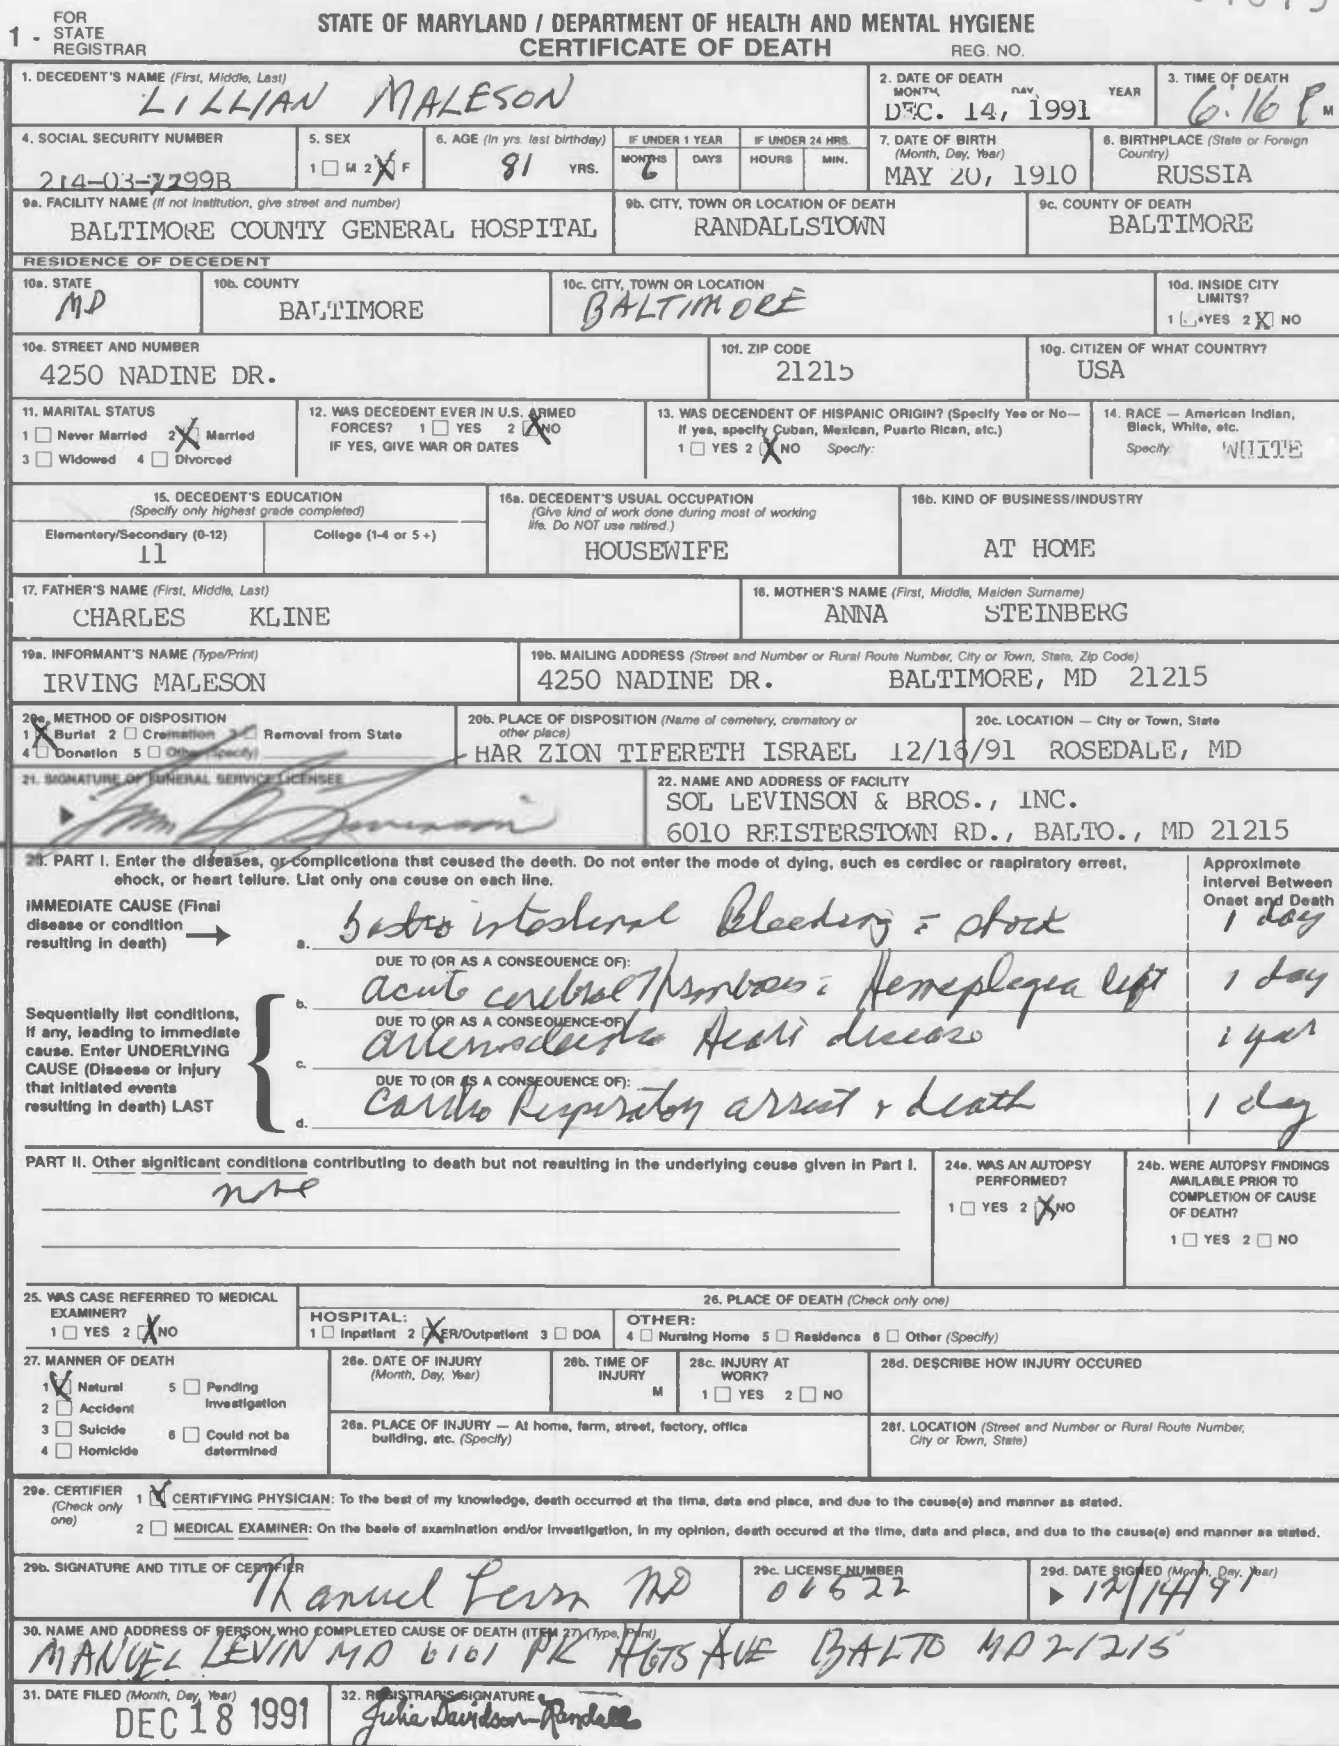 1 - FOR STATE REGISTRAR
STATE OF MARYLAND / DEPARTMENT OF HEALTH AND MENTAL HYGIENE
CERTIFICATE OF DEATH REG. NO.
1. DECEDENT'S NAME (First, Middle, Last)
LILLIAN MALESON
2. DATE OF DEATH
MONTH, DAY, YEAR
DEC. 14, 1991
3. TIME OF DEATH
6:16 P M
4. SOCIAL SECURITY NUMBER
214-03-7299B
5. SEX
1 ☐ M 2 ☒ F
6. AGE (In yrs. last birthday)
81 YRS.
IF UNDER 1 YEAR
MONTHS DAYS
6
IF UNDER 24 HRS.
HOURS MIN.
7. DATE OF BIRTH
(Month, Day, Year)
MAY 20, 1910
8. BIRTHPLACE (State or Foreign Country)
RUSSIA
9a. FACILITY NAME (If not institution, give street and number)
BALTIMORE COUNTY GENERAL HOSPITAL
9b. CITY, TOWN OR LOCATION OF DEATH
RANDALLSTOWN
9c. COUNTY OF DEATH
BALTIMORE
RESIDENCE OF DECEDENT
10a. STATE
MD
10b. COUNTY
BALTIMORE
10c. CITY, TOWN OR LOCATION
BALTIMORE
10d. INSIDE CITY LIMITS?
1 ☐ YES 2 ☒ NO
10e. STREET AND NUMBER
4250 NADINE DR.
10f. ZIP CODE
21215
10g. CITIZEN OF WHAT COUNTRY?
USA
11. MARITAL STATUS
1 ☐ Never Married 2 ☒ Married
3 ☐ Widowed 4 ☐ Divorced
12. WAS DECEDENT EVER IN U.S. ARMED
FORCES? 1 ☐ YES 2 ☒ NO
IF YES, GIVE WAR OR DATES
13. WAS DECENDENT OF HISPANIC ORIGIN? (Specify Yes or No—
If yes, specify Cuban, Mexican, Puerto Rican, etc.)
1 ☐ YES 2 ☒ NO Specify:
14. RACE — American Indian,
Black, White, etc.
Specify WHITE
15. DECEDENT'S EDUCATION
(Specify only highest grade completed)
Elementary/Secondary (0-12) College (1-4 or 5+)
11
16a. DECEDENT'S USUAL OCCUPATION
(Give kind of work done during most of working
life. Do NOT use retired.)
HOUSEWIFE
16b. KIND OF BUSINESS/INDUSTRY
AT HOME
17. FATHER'S NAME (First, Middle, Last)
CHARLES KLINE
18. MOTHER'S NAME (First, Middle, Maiden Surname)
ANNA STEINBERG
19a. INFORMANT'S NAME (Type/Print)
IRVING MALESON
19b. MAILING ADDRESS (Street and Number or Rural Route Number, City or Town, State, Zip Code)
4250 NADINE DR. BALTIMORE, MD 21215
20a. METHOD OF DISPOSITION
1 ☒ Burial 2 ☐ Cremation 3 ☐ Removal from State
4 ☐ Donation 5 ☐ Other (Specify)
20b. PLACE OF DISPOSITION (Name of cemetery, crematory or
other place)
HAR ZION TIFERETH ISRAEL 12/16/91
20c. LOCATION — City or Town, State
ROSEDALE, MD
21. SIGNATURE OF FUNERAL SERVICE LICENSEE
22. NAME AND ADDRESS OF FACILITY
SOL LEVINSON & BROS., INC.
6010 REISTERSTOWN RD., BALTO., MD 21215
23. PART I. Enter the diseases, or complications that caused the death. Do not enter the mode of dying, such as cardiac or respiratory arrest,
shock, or heart failure. List only one cause on each line.
Approximate
Interval Between
Onset and Death
IMMEDIATE CAUSE (Final
disease or condition
resulting in death) →
a. Gastro intestinal Bleeding = shock 1 day
DUE TO (OR AS A CONSEQUENCE OF):
b. acute cerebral Thrombosis = Hemeplegea left 1 day
Sequentially list conditions,
if any, leading to immediate
cause. Enter UNDERLYING
CAUSE (Disease or injury
that initiated events
resulting in death) LAST
DUE TO (OR AS A CONSEQUENCE OF):
c. arteriosclerotic Heart disease 1 year
DUE TO (OR AS A CONSEQUENCE OF):
d. Cardio Respiratory arrest & death 1 day
PART II. Other significant conditions contributing to death but not resulting in the underlying cause given in Part I.
none
24a. WAS AN AUTOPSY
PERFORMED?
1 ☐ YES 2 ☒ NO
24b. WERE AUTOPSY FINDINGS
AVAILABLE PRIOR TO
COMPLETION OF CAUSE
OF DEATH?
1 ☐ YES 2 ☐ NO
25. WAS CASE REFERRED TO MEDICAL
EXAMINER?
1 ☐ YES 2 ☒ NO
26. PLACE OF DEATH (Check only one)
HOSPITAL:
1 ☐ Inpatient 2 ☒ ER/Outpatient 3 ☐ DOA
OTHER:
4 ☐ Nursing Home 5 ☐ Residence 6 ☐ Other (Specify)
27. MANNER OF DEATH
1 ☒ Natural 5 ☐ Pending Investigation
2 ☐ Accident
3 ☐ Suicide 6 ☐ Could not be determined
4 ☐ Homicide
28a. DATE OF INJURY
(Month, Day, Year)
28b. TIME OF
INJURY
M
28c. INJURY AT
WORK?
1 ☐ YES 2 ☐ NO
28d. DESCRIBE HOW INJURY OCCURED
28e. PLACE OF INJURY — At home, farm, street, factory, office
building, etc. (Specify)
28f. LOCATION (Street and Number or Rural Route Number,
City or Town, State)
29a. CERTIFIER
(Check only
one)
1 ☒ CERTIFYING PHYSICIAN: To the best of my knowledge, death occurred at the time, date and place, and due to the cause(s) and manner as stated.
2 ☐ MEDICAL EXAMINER: On the basis of examination and/or investigation, in my opinion, death occured at the time, date and place, and due to the cause(s) and manner as stated.
29b. SIGNATURE AND TITLE OF CERTIFIER
Manuel Levin MD
29c. LICENSE NUMBER
06522
29d. DATE SIGNED (Month, Day, Year)
12/14/91
30. NAME AND ADDRESS OF PERSON WHO COMPLETED CAUSE OF DEATH (ITEM 27) (Type, Print)
MANUEL LEVIN MD 6101 PK HGTS AVE BALTO MD 21215
31. DATE FILED (Month, Day, Year)
DEC 18 1991
32. REGISTRAR'S SIGNATURE
Julia Davidson-Randall